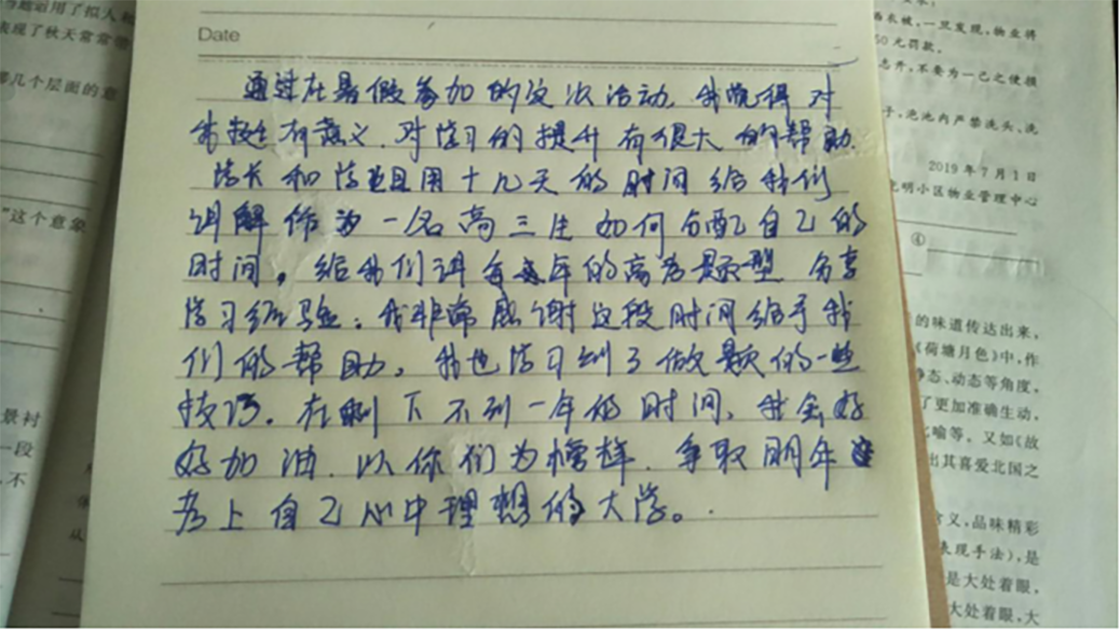 Date
通过在暑假参加的这次活动,我觉得对
我挺有意义.对学习的提升有很大的帮助.
学长和学姐用十几天的时间给我们
讲解作为一名高三生如何分配自己的
时间。给我们讲每年的高考题型 分享
学习经验。我非常感谢这段时间给予我
们的帮助。我也学习到了做题的一些
技巧。在剩下不到一年的时间,我会好
好加油.以你们为榜样.争取明年
考上自己心中理想的大学。
述运用了拟人
表现了秋天常常
那几个层面的意
"这个意象
景衬
一段
不
晒衣被,一旦发现,物业将
50元罚款。
子,泡池内严禁洗头、洗
2019年7月1日
光明小区物业管理中心
④
的味道传达出来,
《荷塘月色》中,作
静态、动态等角度,
了更加准确生动,
比喻等。又如《故
出其喜爱北国之
含义,品味精彩
表现手法),是
是大处着眼,
大处着眼,大